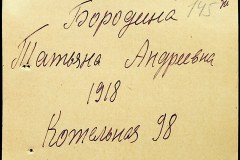 Бородина 145
Татьяна Андреевна
1918
Котельная 98